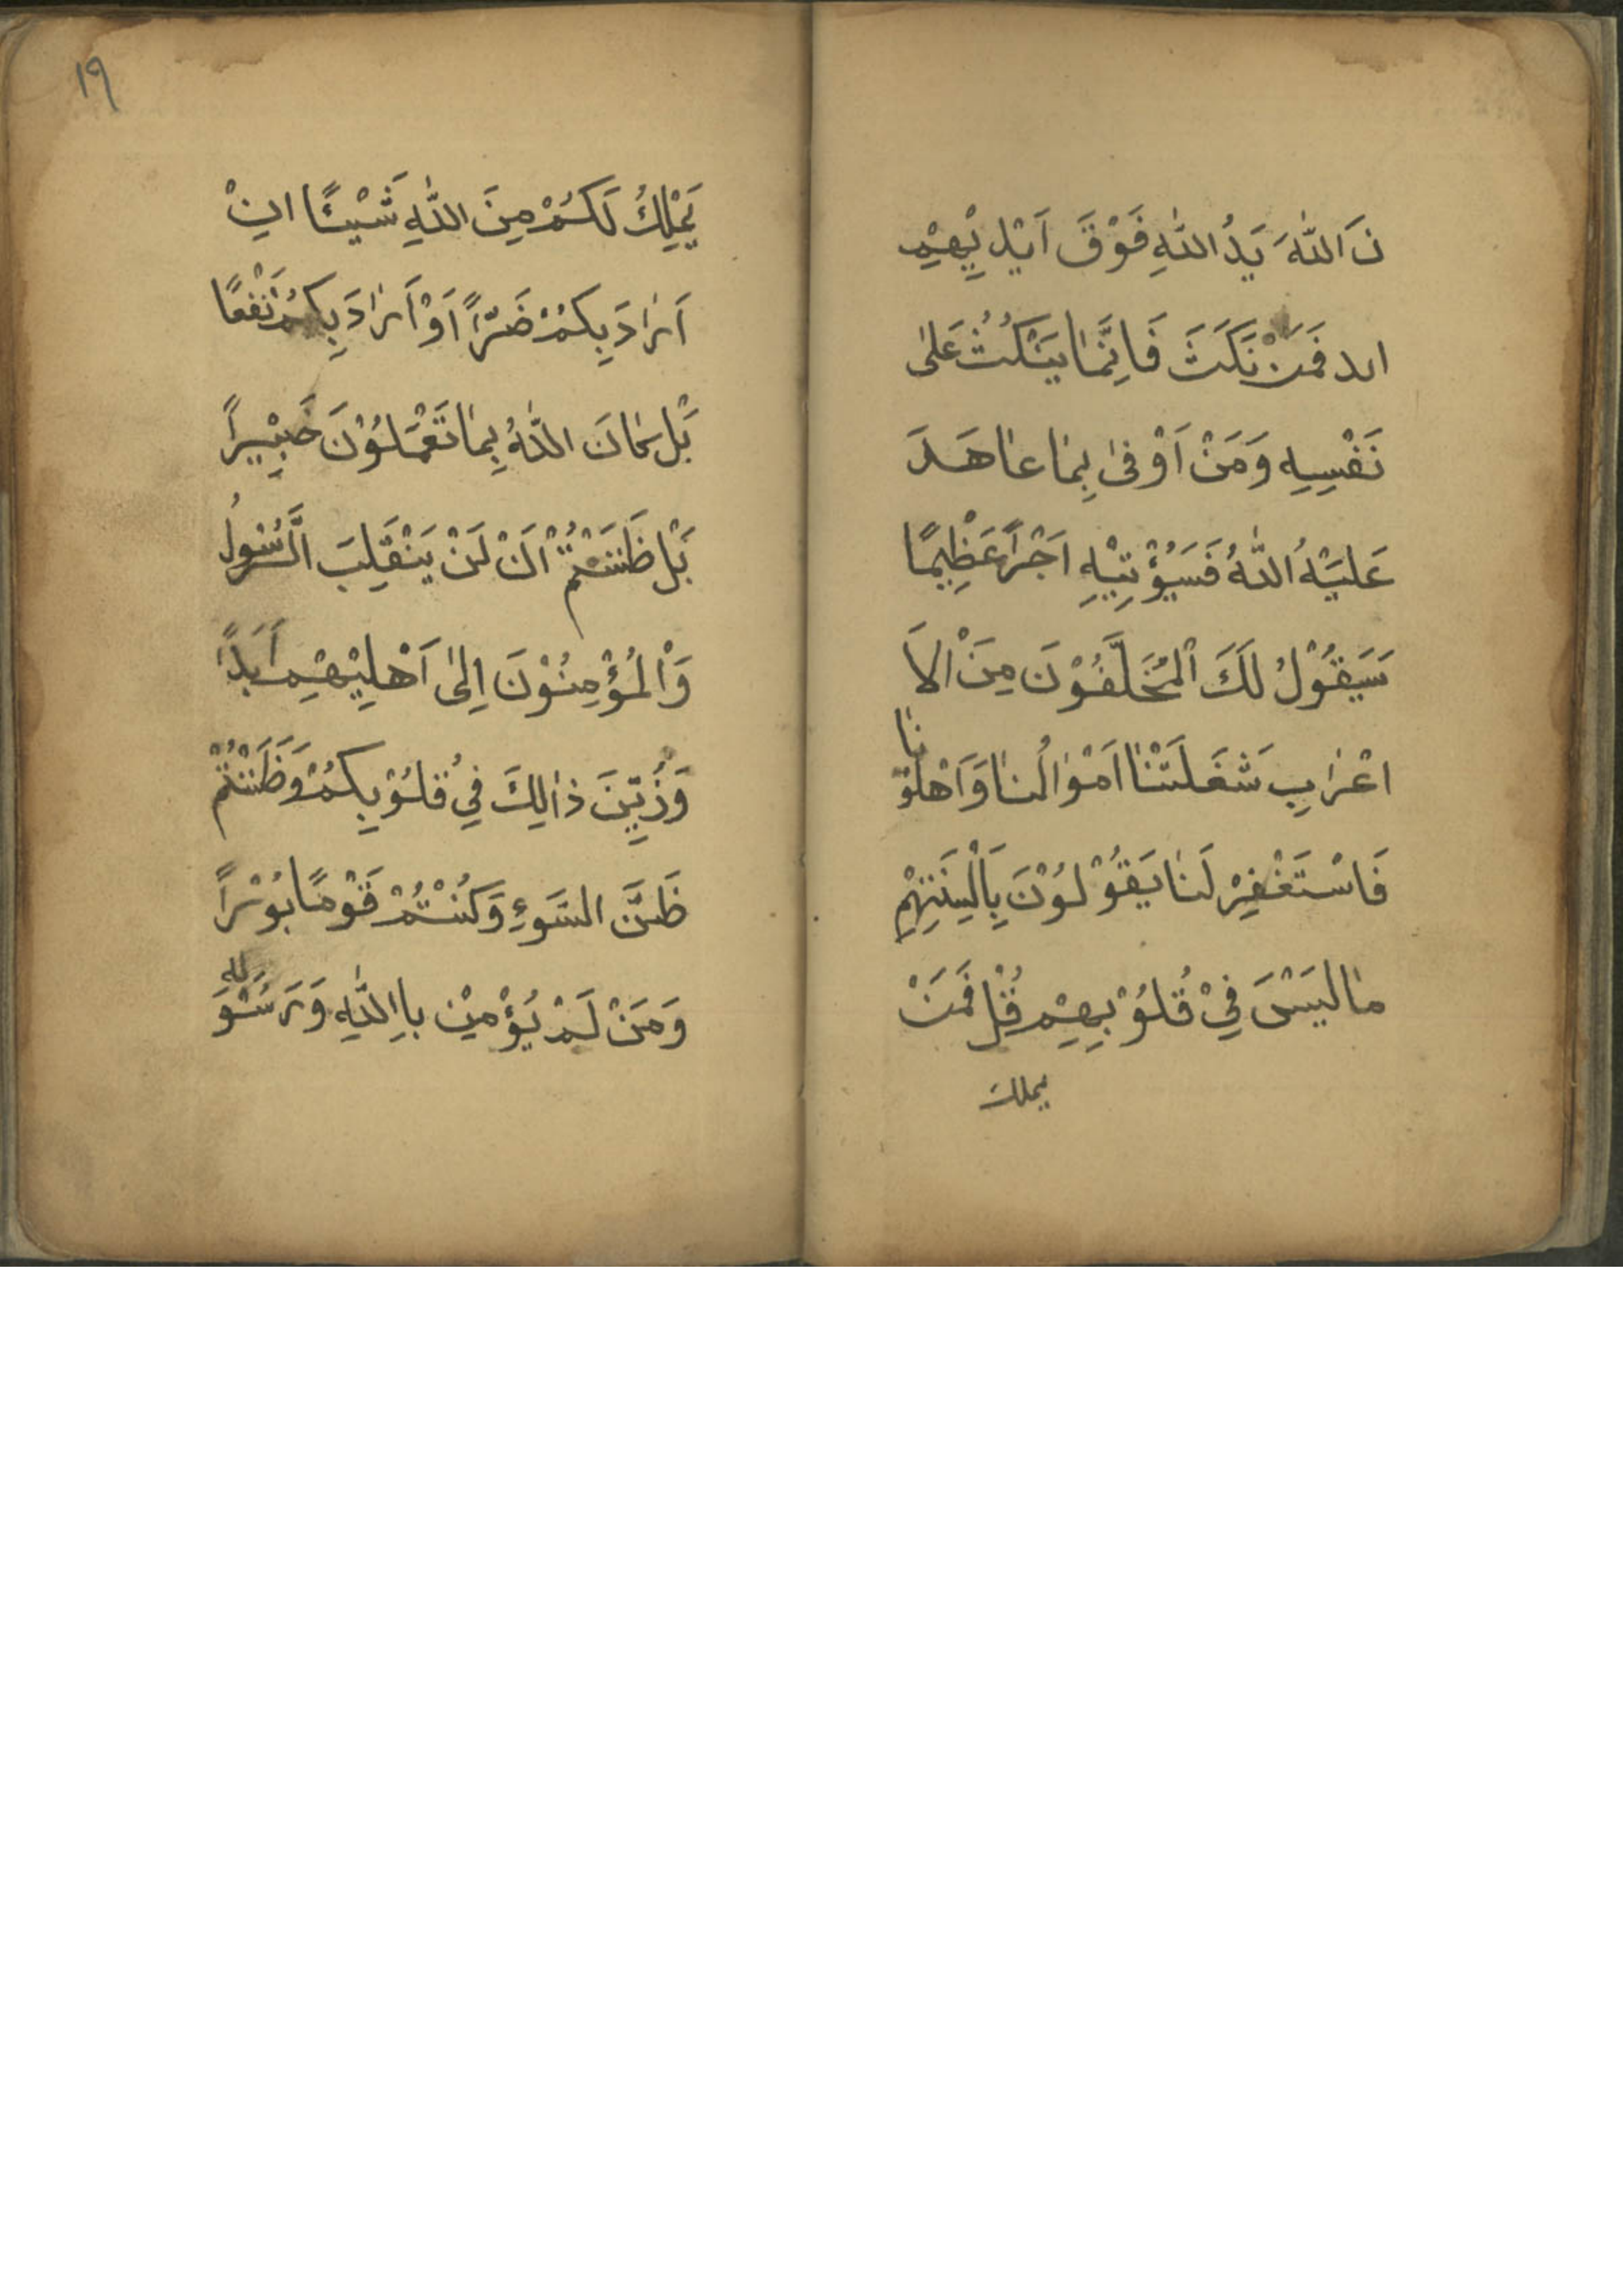 نَ اللّٰهَ يَدُ اللّٰهِ فَوْقَ اَيْدِيْهِمْ
الد فَمَنْ نَكَثَ فَاِنَّمٰا يَنْكُثُ عَلىٰ
نَفْسِهِ وَمَنْ اَوْفىٰ بِمٰا عٰاهَدَ
عَلَيْهُ اللّٰهُ فَسَيُؤْتِيْهِ اَجْراً عَظِيْمًا
سَيَقُوْلُ لَكَ الْمُخَلَّفُوْنَ مِنَ الْاَ
اعْرٰابِ شَغَلَتْنٰا اَمْوٰالُنٰا وَاَهْلُوْنٰا
فَاسْتَغْفِرْ لَنٰا يَقُوْلُوْنَ بِاَلْسِنَتِهِمْ
مٰا لَيْسَ فِيْ قُلُوْبِهِمْ قُلْ فَمَنْ
يملك
١٩
يَمْلِكُ لَكُمْ مِنَ اللّٰهِ شَيْئًا اِنْ
اَرٰادَ بِكُمْ ضَرّاً اَوْ اَرٰادَ بِكُمْ نَفْعًا
بَلْ كٰانَ اللّٰهُ بِمٰا تَعْمَلُوْنَ خَبِيْراً
بَلْ ظَنَنْتُمْ اَنْ لَنْ يَنْقَلِبَ الرَّسُوْلُ
وَالْمُؤْمِنُوْنَ اِلىٰ اَهْلِيْهِمْ اَبَداً
وَزُيِّنَ ذٰالِكَ فِيْ قُلُوْبِكُمْ وَظَنَنْتُمْ
ظَنَّ السَّوءِ وَكُنْتُمْ قَوْمًا بُوْراً
وَمَنْ لَمْ يُؤْمِنْ بِاِاللّٰهِ وَرَسُوْلِهِ